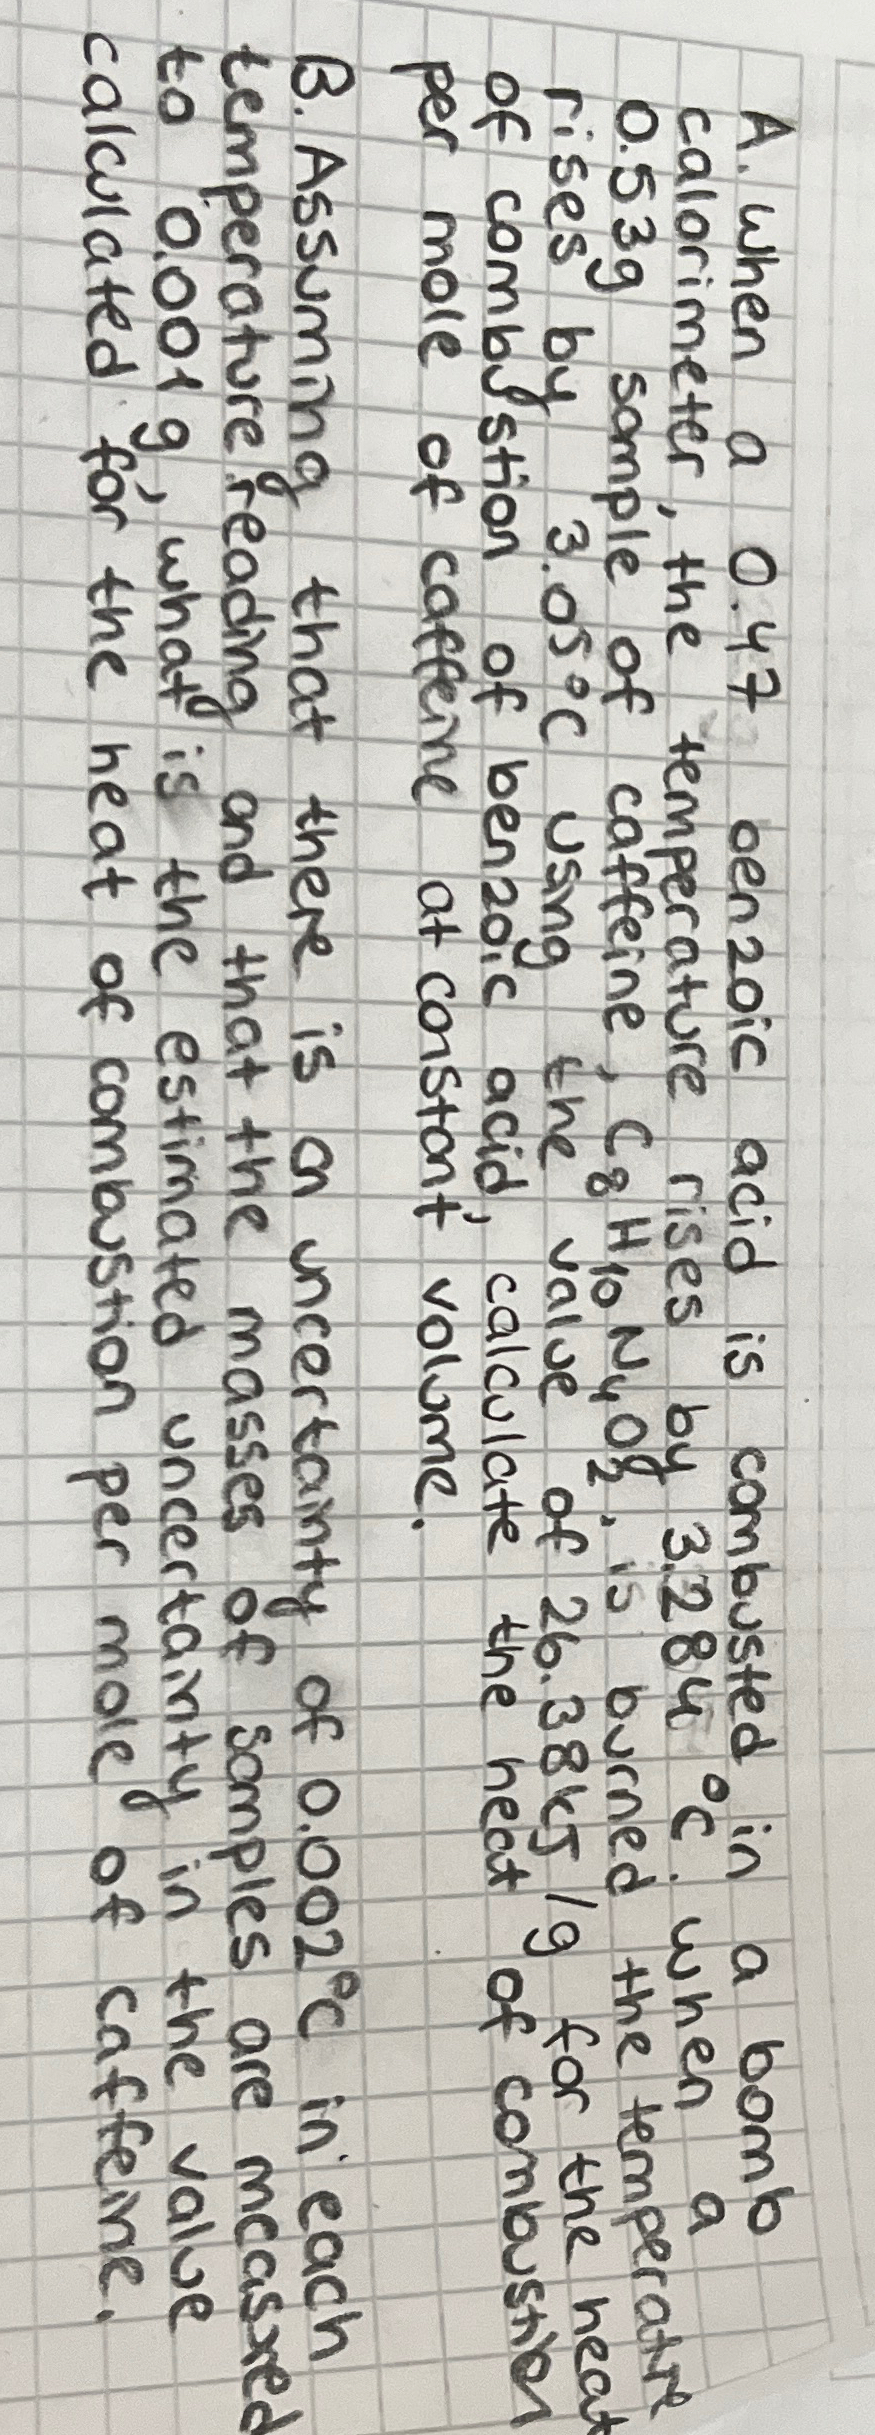 A. When a 0.47 benzoic acid is combusted in a bomb
calorimeter, the temperature rises by 3.284 °C. when a
0.539 sample of caffeine, C8H10N4O2, is burned the temperatre
rises by 3.05 °C using the value of 26.38 kJ/g for the heat
of combustion of benzoic acid, calculate the heat of combustion
per mole of caffeine at constant volume.
B. Assuming that there is an uncertainty of 0.002 °C in each
temperature reading and that the masses of samples are measred
to 0.001 g, what is the estimated uncertainty in the value
calculated for the heat of combustion per mole of caffeine.